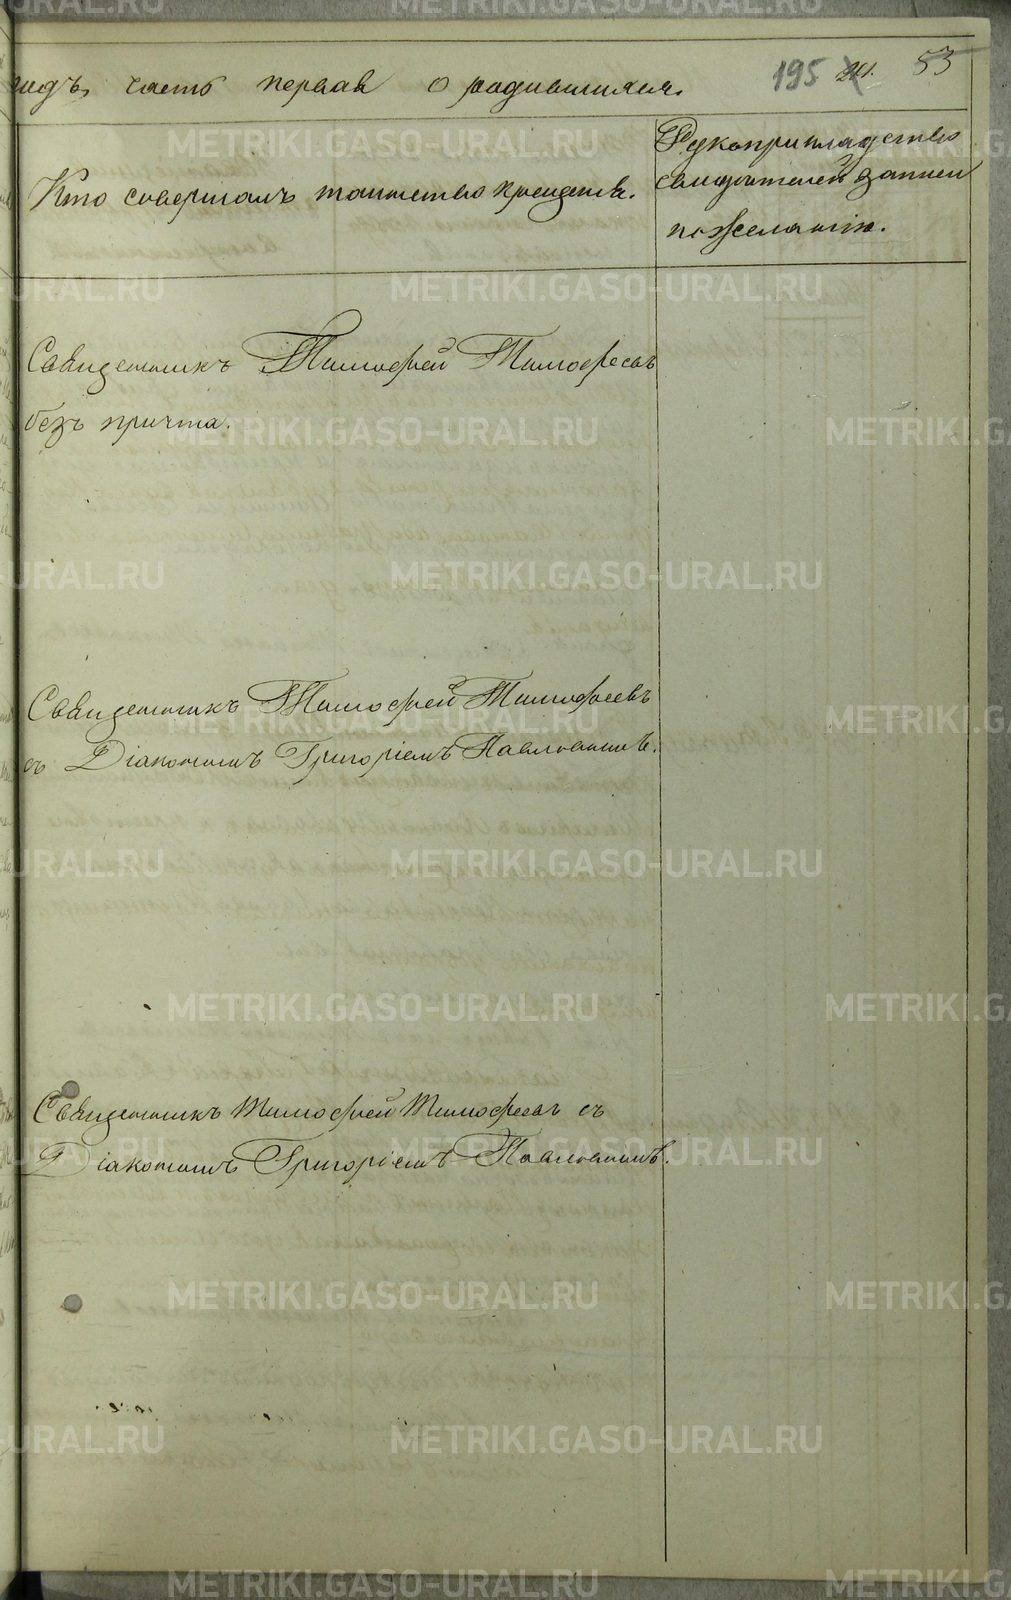 годъ, часть первая о родившихся. 195 53
Кто совершалъ таинство крещенія.
Рукоприкладство
свидѣтелей записи
по желанію.
Священникъ Тимофей Тимофеевъ
безъ причта.
Священникъ Тимофей Тимофеевъ
съ Діакономъ Григоріемъ Павловымъ.
Священникъ Тимофей Тимофеевъ съ
Діакономъ Григоріемъ Павловымъ.
METRIKI.GASO-URAL.RU